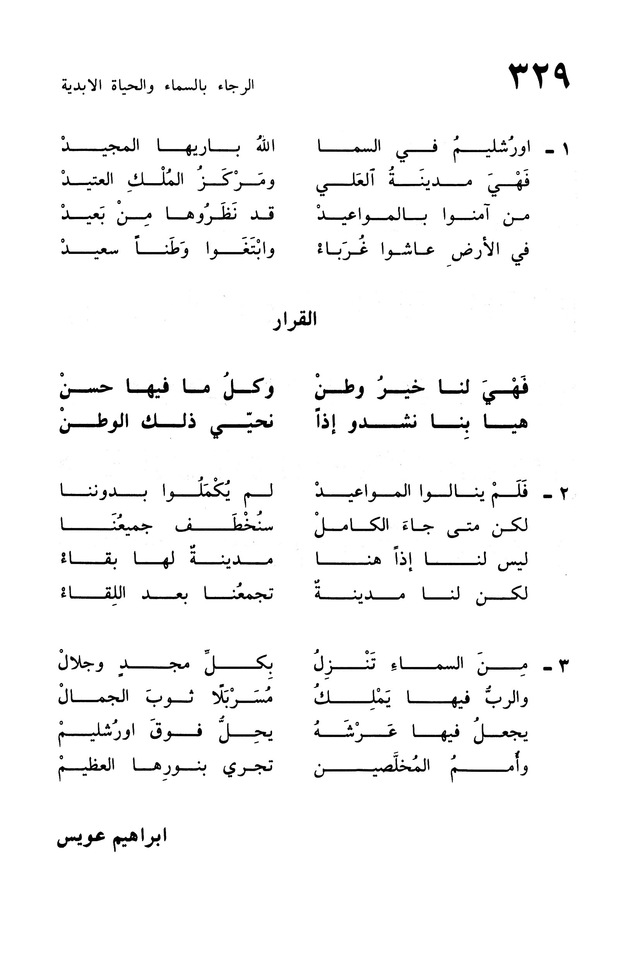 ٣٢٩
الرجاء بالسماء والحياة الابدية
١ - اورُشليمُ في السما اللهُ باريها المجيدْ
فَهْيَ مدينَةُ ٱلعَلي ومَرْكَزُ المُلْكِ العتيدْ
من آمنوا بالمواعيدْ قد نَظَرُوها مِنْ بَعيدْ
في الأرضِ عاشوا غُرَباءْ وابْتَغَوا وَطَناً سعيدْ
القرار
فَهْيَ لنا خيرُ وطنْ وكلُ ما فيها حسنْ
هيا بِنا نشدو إذاً نحيّي ذلك الوطنْ
٢ - فَلَمْ ينالوا المواعيدْ لم يُكْمَلُوا بدوننا
لكن متى جاءَ الكاملْ سنُخْطَف جميعُنَا
ليس لنا إذاً هنا مدينةٌ لها بقاءْ
لكن لنا مدينةٌ تجمعُنا بعد اللِقاءْ
٣ - مِنَ السماءِ تَنْزِلُ بِكلِّ مجدٍ وجلالْ
والربُّ فيها يَمْلِكُ مُسَرْبَلًا ثوبَ الجمالْ
يجعلُ فيها عَرْشَهُ يحِلُّ فوقَ اورُشليمْ
وأُممُ المُخلَّصين تجري بنورِها العظيمْ
ابراهيم عويس